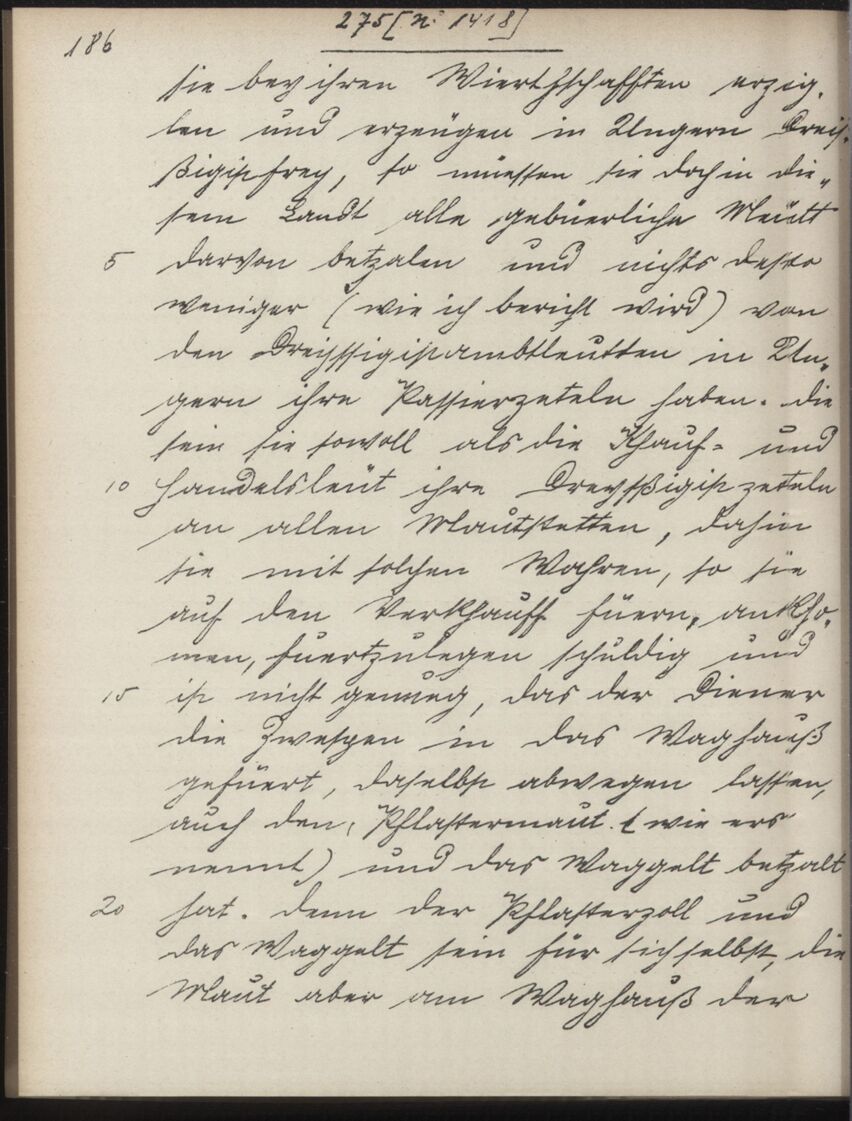 275 [N: 1418]
186
sie bey ihren Wierthschafften erzig„
len und erzeugen in Ungern Dreis„
ßigistfrey, so müessen sie doch in die„
sem Landt alle gebüerliche Meütt
5 darvon betzalen und nichts desto
weniger (wie ich bericht wird) von
den Dreissigistambtleutten in Un„
gern ihre Passierzeteln haben. die
sein sie sowoll als die Khauf- und
10 Handelsleüt ihre Dreyssigist zeteln
an allen Mautstetten, dahin
sie mit solchen Wahren, so sie
auf den Verkhauff füern, ankho„
men, fuertzulegen schuldig und
15 ist nicht genueg, das der Diener
die Zwespen in das Waghauß
gefüert, daselbst abwegen lassen,
auch den Pflastermaut (wie ers
nennt) und das Waggelt betzalt
20 hat. denn der Pflasterzoll und
das Waggelt sein für sich selbst, die
Maut aber am Waghauß der